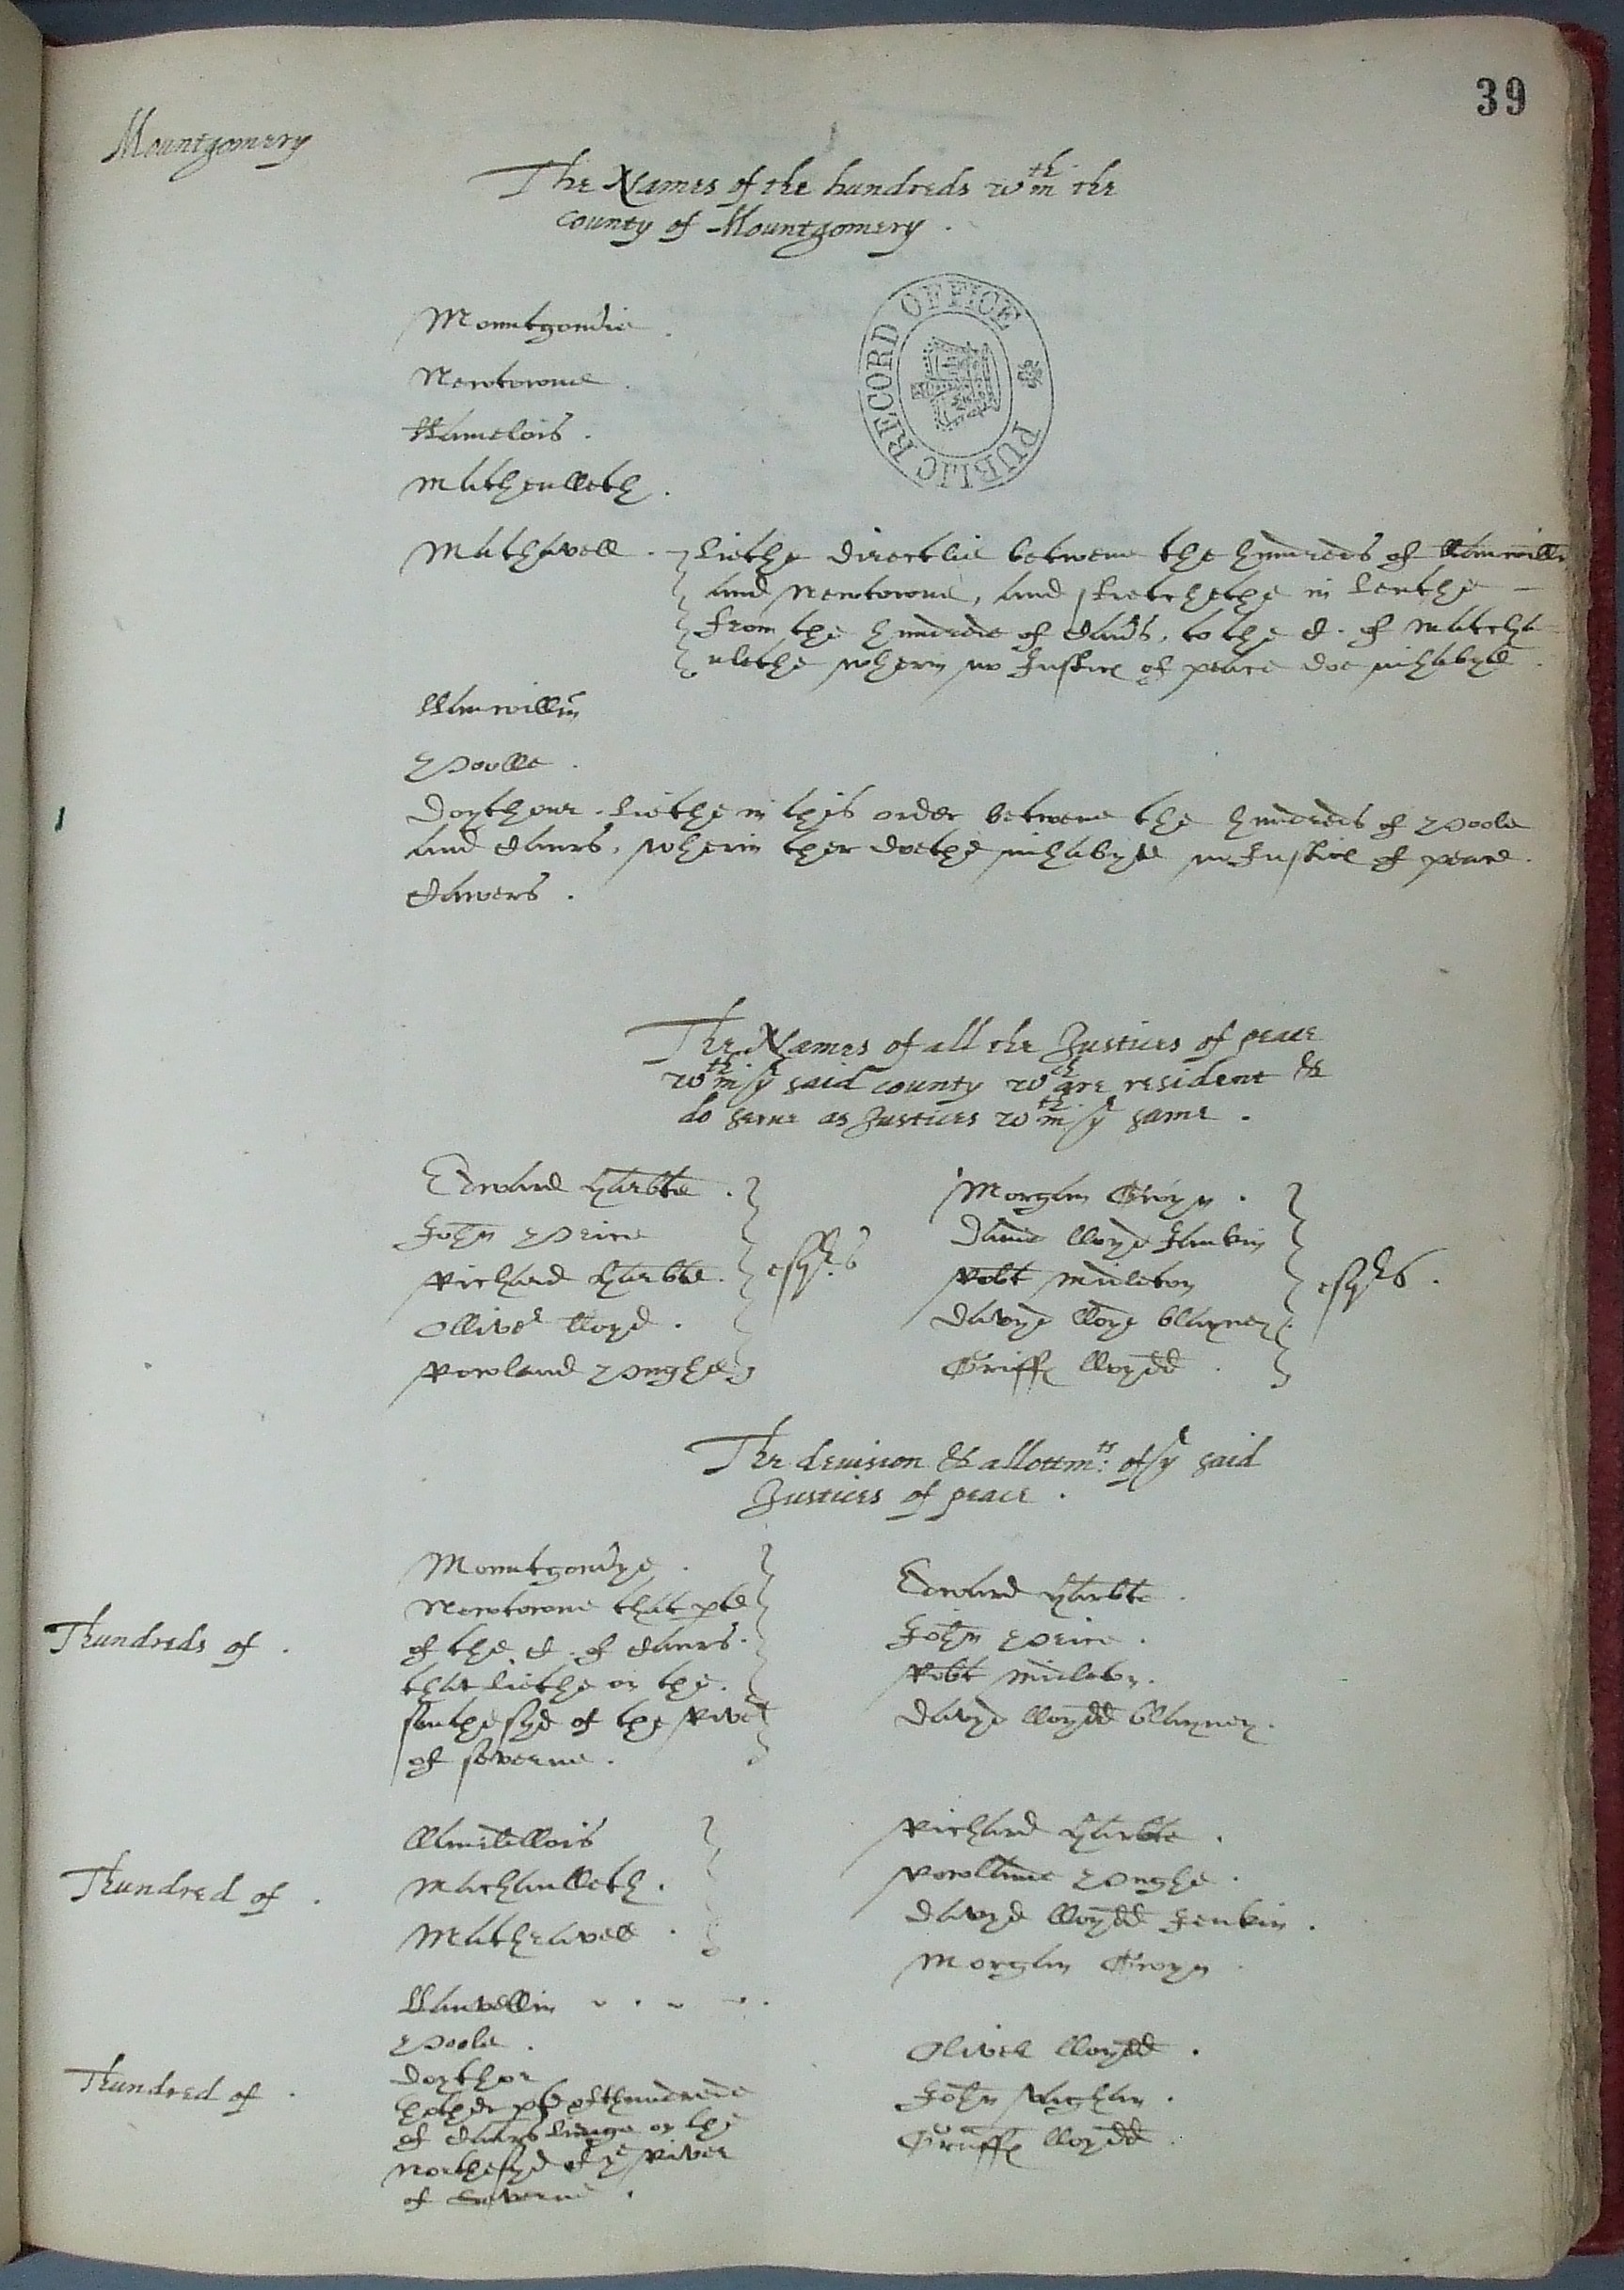 39
Mountgomery
The Names of the hundreds wth in the
county of Mountgomery .
Mountgom'ie .
Newtowne .
Llanelois .
Mathenlleth .
Mathavell . liethe directlie betwene the hundreds of
and Newtowne, and stretchethe in lenthe —
from the hundrede of , to the . of Matcha
nlethe wherin no Justice of peace doe inhabyte .
Llanwillin
Poolle .
Doythour . liethe in this order betwene the hundreds of Poole
and , wherin ther doethe inhabyte no Justice of peace .
PUBLIC RECORD OFFICE
The Names of all the Justices of peace
wth in ye said county wch are resident &
do serue as Justices wth in ye same .
Edward Harbte .
John Price
Richard Harbte .
Olliver lloyd .
Rowland Pughe
esqrs
Morgan Gwyn .
Dauid lloyd Jankin
Robt Midleton
Davyd lloyd Blayney .
Griff lloydd .
esqrs .
The deuision & allottmts: of ye said
Justices of peace .
Hundreds of .
Mountgom'ye .
Newtowne that pte
of the . of
that liethe on the .
southe syd of the River
of Severne .
Edward Harbte .
John Price .
Robt Midleton .
Davyd lloydd Blayney .
Hundred of .
Llanidlois
Machanlleth .
Mathravell .
Richard Harbte .
Rowland Pughe .
Davyd lloydd Jenkin .
Morgan Gwyn .
Hundred of .
Llanvellin . . . .
Poole .
Doythor
thother pte of thundrede
of lienge on the
Northe syd of ye River
of Severne .
Oliver lloydd .
John Vaghan .
Gruff lloydd .